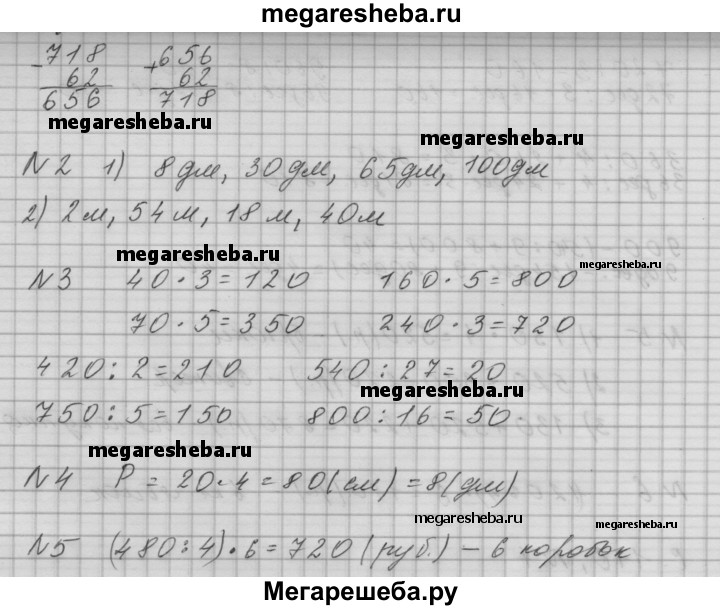 megaresheba.ru
- 718 + 656
62 62
656 718
megaresheba.ru megaresheba.ru
№2 1) 8дм, 30дм, 65дм, 100дм
2) 2м, 54м, 18м, 40м
megaresheba.ru megaresheba.ru
№3 40·3=120 160·5=800
70·5=350 240·3=720
420:2=210 540:27=20
megaresheba.ru
750:5=150 800:16=50
megaresheba.ru
№4 P = 20·4=80(см)=8(дм)
megaresheba.ru megaresheba.ru
№5 (480:4)·6=720(руб.)-6 коробок
Мегарешеба.ру